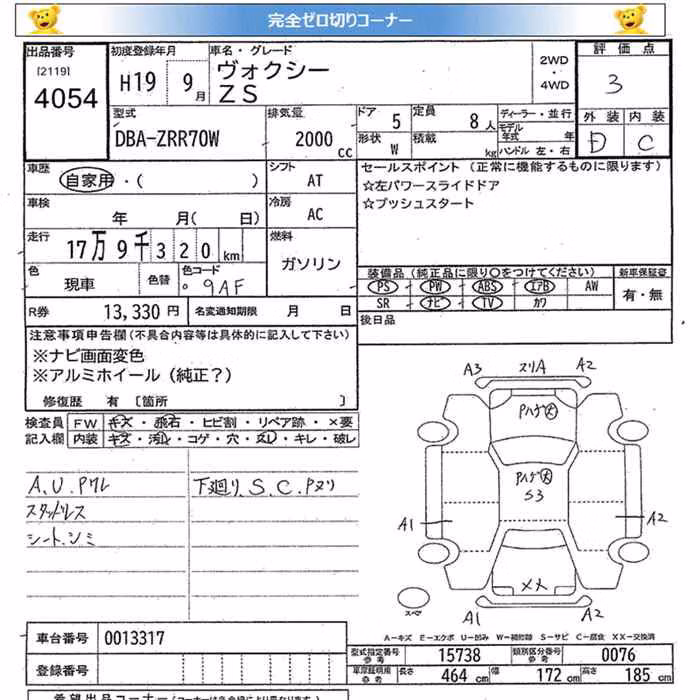 完全ゼロ切りコーナー
出品番号
[2119]
4054
初度登録年月
H19 9月
車名・グレード
ヴォクシー
ZS
2WD
・
4WD
評価点
3
外装 内装
D C
型式
DBA-ZRR70W
排気量
2000
cc
ドア 5
定員 8人
形状 W
積載 kg
ディーラー・並行
モデル年式 年
ハンドル 左・右
車歴
自家用・( )
シフト
AT
車検
年 月( 日)
冷房
AC
走行
17万9千320km
燃料
ガソリン
色
現車
色替
色コード
9AF
セールスポイント (正常に機能するものに限ります)
☆左パワースライドドア
☆プッシュスタート
装備品(純正品に限り○をつけてください)
新車保証書
PS PW ABS エアB AW
SR ナビ TV カワ
有・無
R券 13,330円
名変通知期限 月 日
後日品
注意事項申告欄(不具合内容等は具体的に記入して下さい)
※ナビ画面変色
※アルミホイール(純正?)
修復歴 有〔箇所 〕
検査員
記入欄
FW キズ・飛石・ヒビ割・リペア跡・×要
内装 キズ・汚れ・コゲ・穴・スレ・キレ・破レ
A.U.Pクレ
スタッドレス
シート.シミ
下廻り.S.C.Pヌリ
A3 スリA A2
Pハゲ大
Pハゲ大
S3
A1 A2
XX
スペア
A1 A2
A-キズ E-エクボ U-凹み W-補修跡 S-サビ C-腐食 XX-交換済
車台番号 0013317
登録番号
型式指定番号
参考
15738
類別区分番号
参考
0076
車庫証明用
参考
長さ 464cm 幅 172cm 高さ 185cm
希望出品コーナー